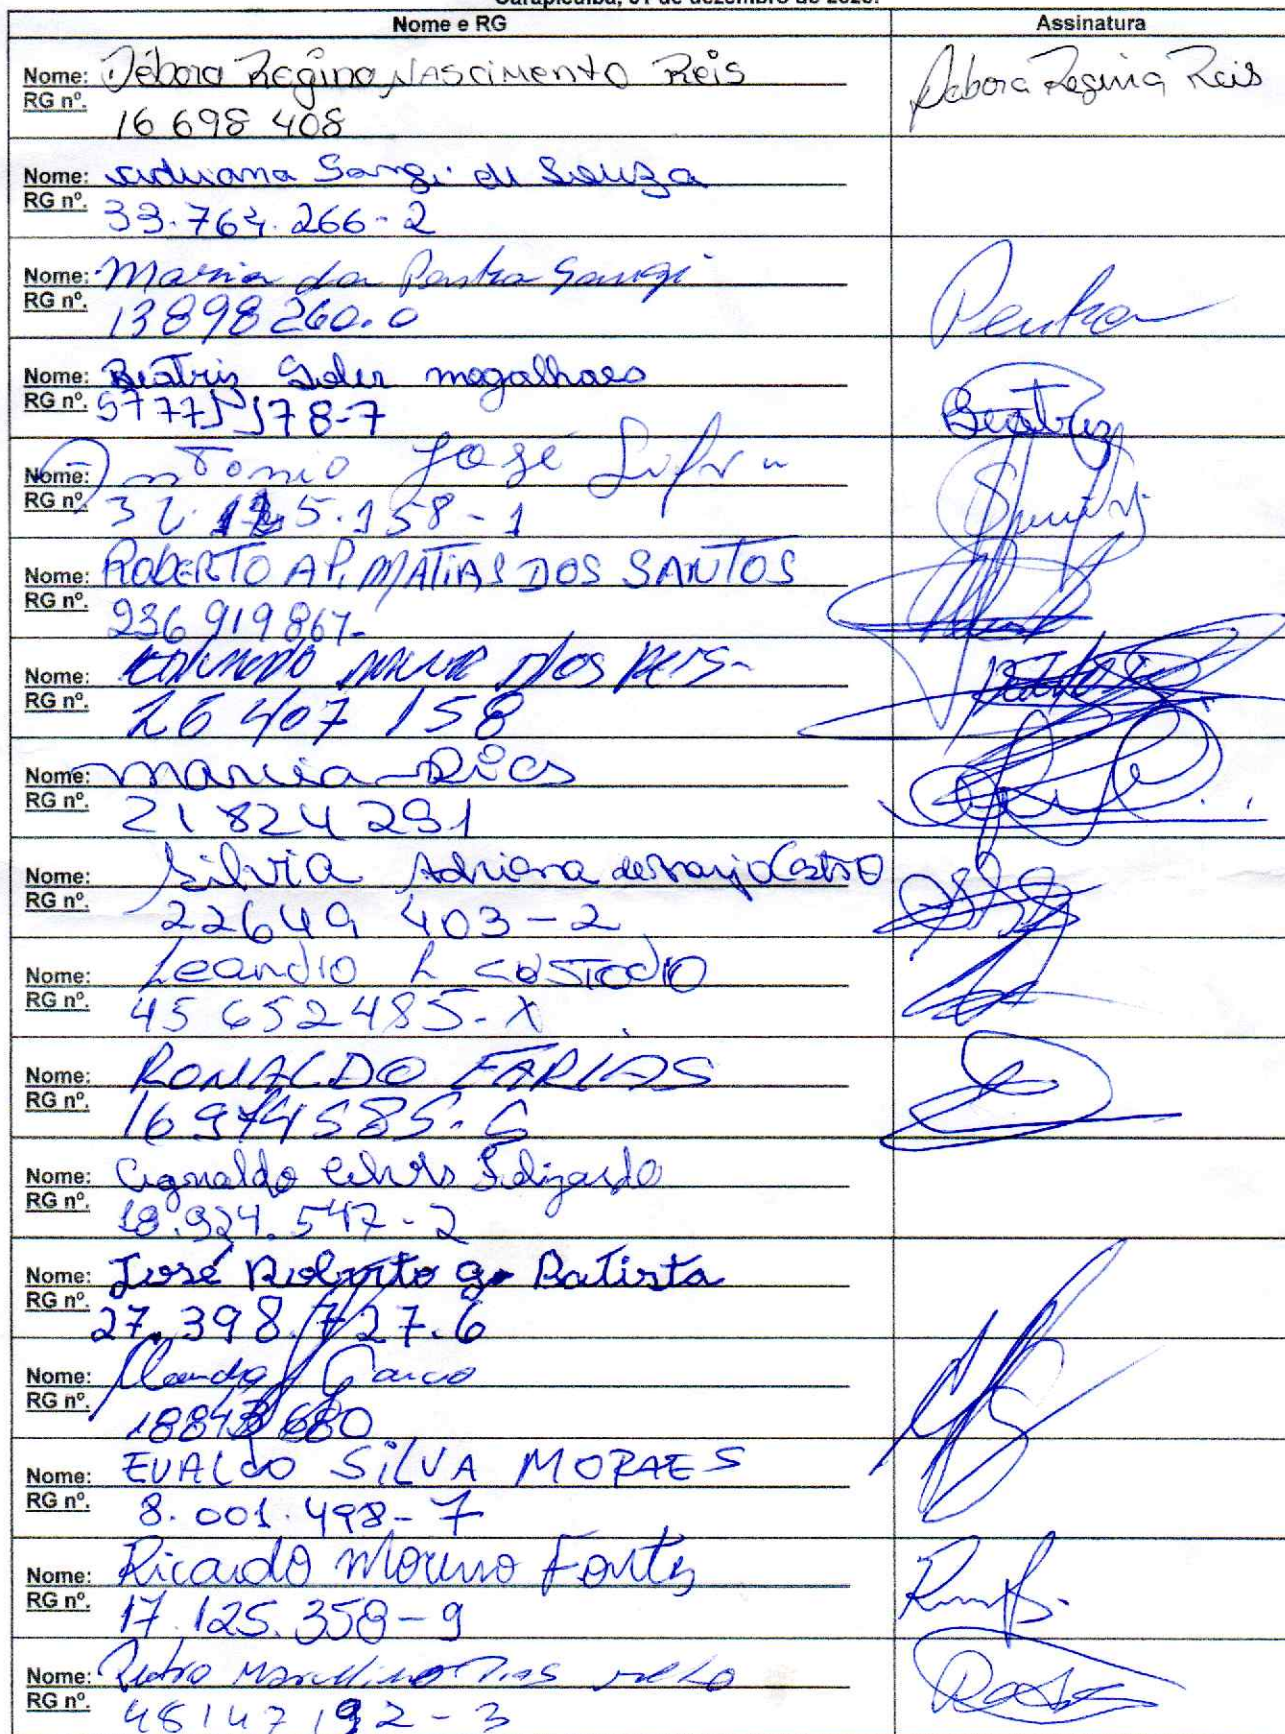 Carapicuíba, 01 de dezembro de 2020.
Nome e RG Assinatura
Nome: Débora Regina Nascimento Reis Debora Regina Reis
RG nº.
16 698 408
Nome: Adriana Sangi de Souza
RG nº. 33.764.266-2
Nome: Maria da Penha Sangi Penha
RG nº. 13898260.0
Nome: Beatriz Soler magalhaes Beatriz
RG nº. 178-7
Nome: Antonio José
RG nº. 5.158-1
Nome: ROBERTO AP. MATIAS DOS SANTOS
RG nº. 236919867-
Nome: DOS REIS-
RG nº. 26 407 158
Nome: Marcia Dias
RG nº. 21 824 291
Nome: Silvia Adriana de Araujo Castro
RG nº. 22649 403-2
Nome: Leandro L CUSTODIO
RG nº. 45 652485-X
Nome: RONALDO FARIAS
RG nº. 16 974585-6
Nome: Agnaldo Felizardo
RG nº. 18.924.547-2
Nome: José Roberto G. Batista
RG nº. 27.398.727.6
Nome: Garcia
RG nº. 18843680
Nome: EVALDO SILVA MORAES
RG nº. 8.001.498-7
Nome: Ricardo Moreno Fontes
RG nº. 17.125.358-9
Nome: Pedro Marcelino Dias
RG nº. 48147192-3